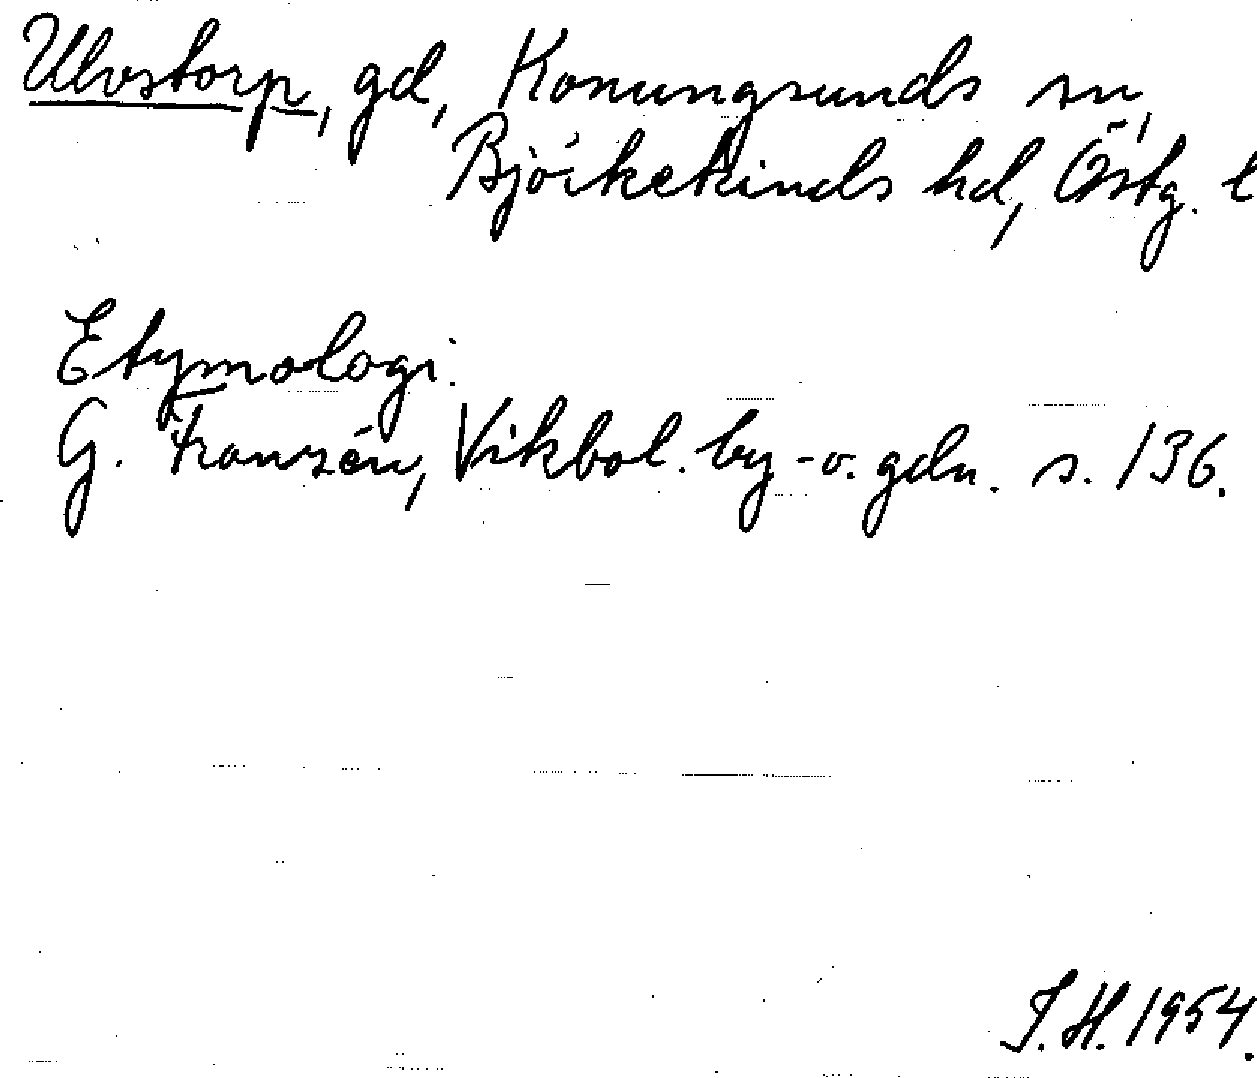 Ulvstorp, gd, Konungsunds sn,
Björkekinds hd, Östg. l
Etymologi.
G. Franzén, Vikbol. by- o. gdn. s. 136.
I.H. 1954.